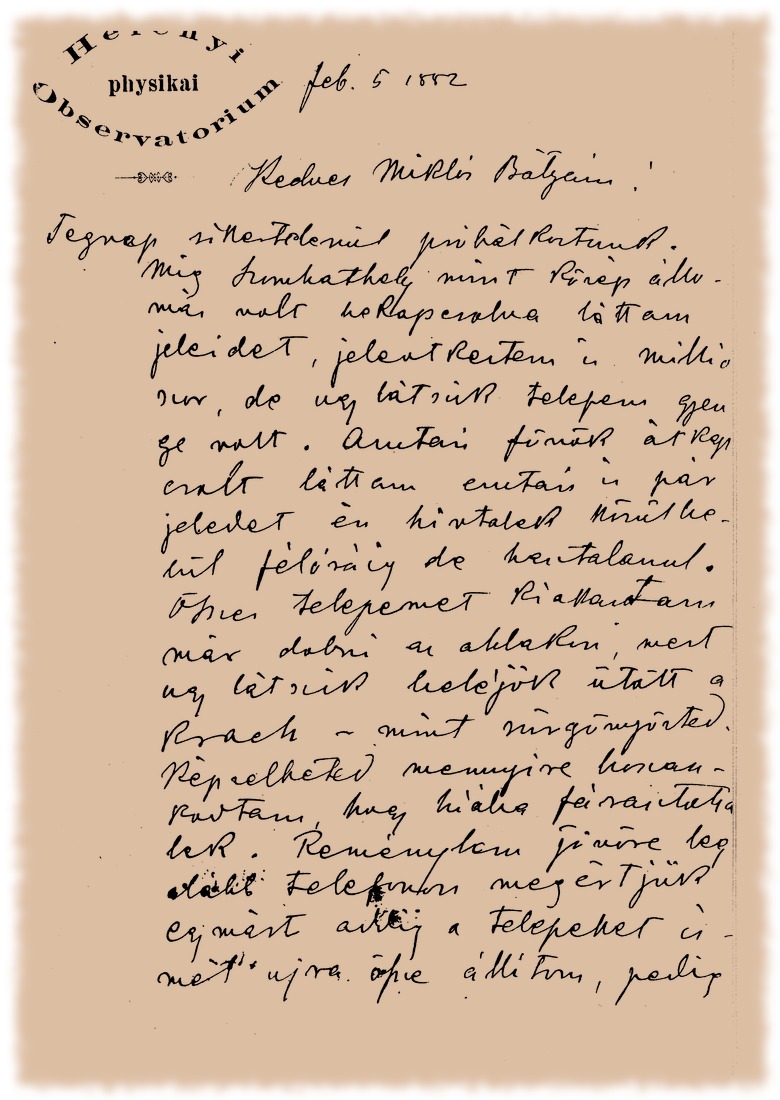 Herényi
physikai
Observatorium
feb. 5 1882
Kedves Miklós Bátyám!
Tegnap sikertelenül próbálkoztunk.
Mig Szombathely mint közép állo-
más volt bekapcsolva láttam
jeleidet, jelentkeztem is millio
szor, de ugy látszik telepem gyen
ge volt. Azután főnök átkap
csolt láttam ezután is pár
jeledet én hivtalak körülbe-
lül félóráig de haztalanul.
Összes telepemet ki akartam
már dobni az ablakon, mert
ugy látszik beléjök ütött a
Krach – mint sürgönyözted.
Képzelheted mennyire boszan-
kodtam, hogy hiába fárasztotta
lak. Reménylem jövőre leg
alább telefonon megértjük
egymást addig a telepeket is-
mét ujra össze állitom, pedig